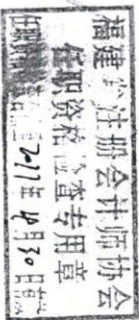 福建省注册会计师协会
任职资格检查专用章
至2011年4月30日